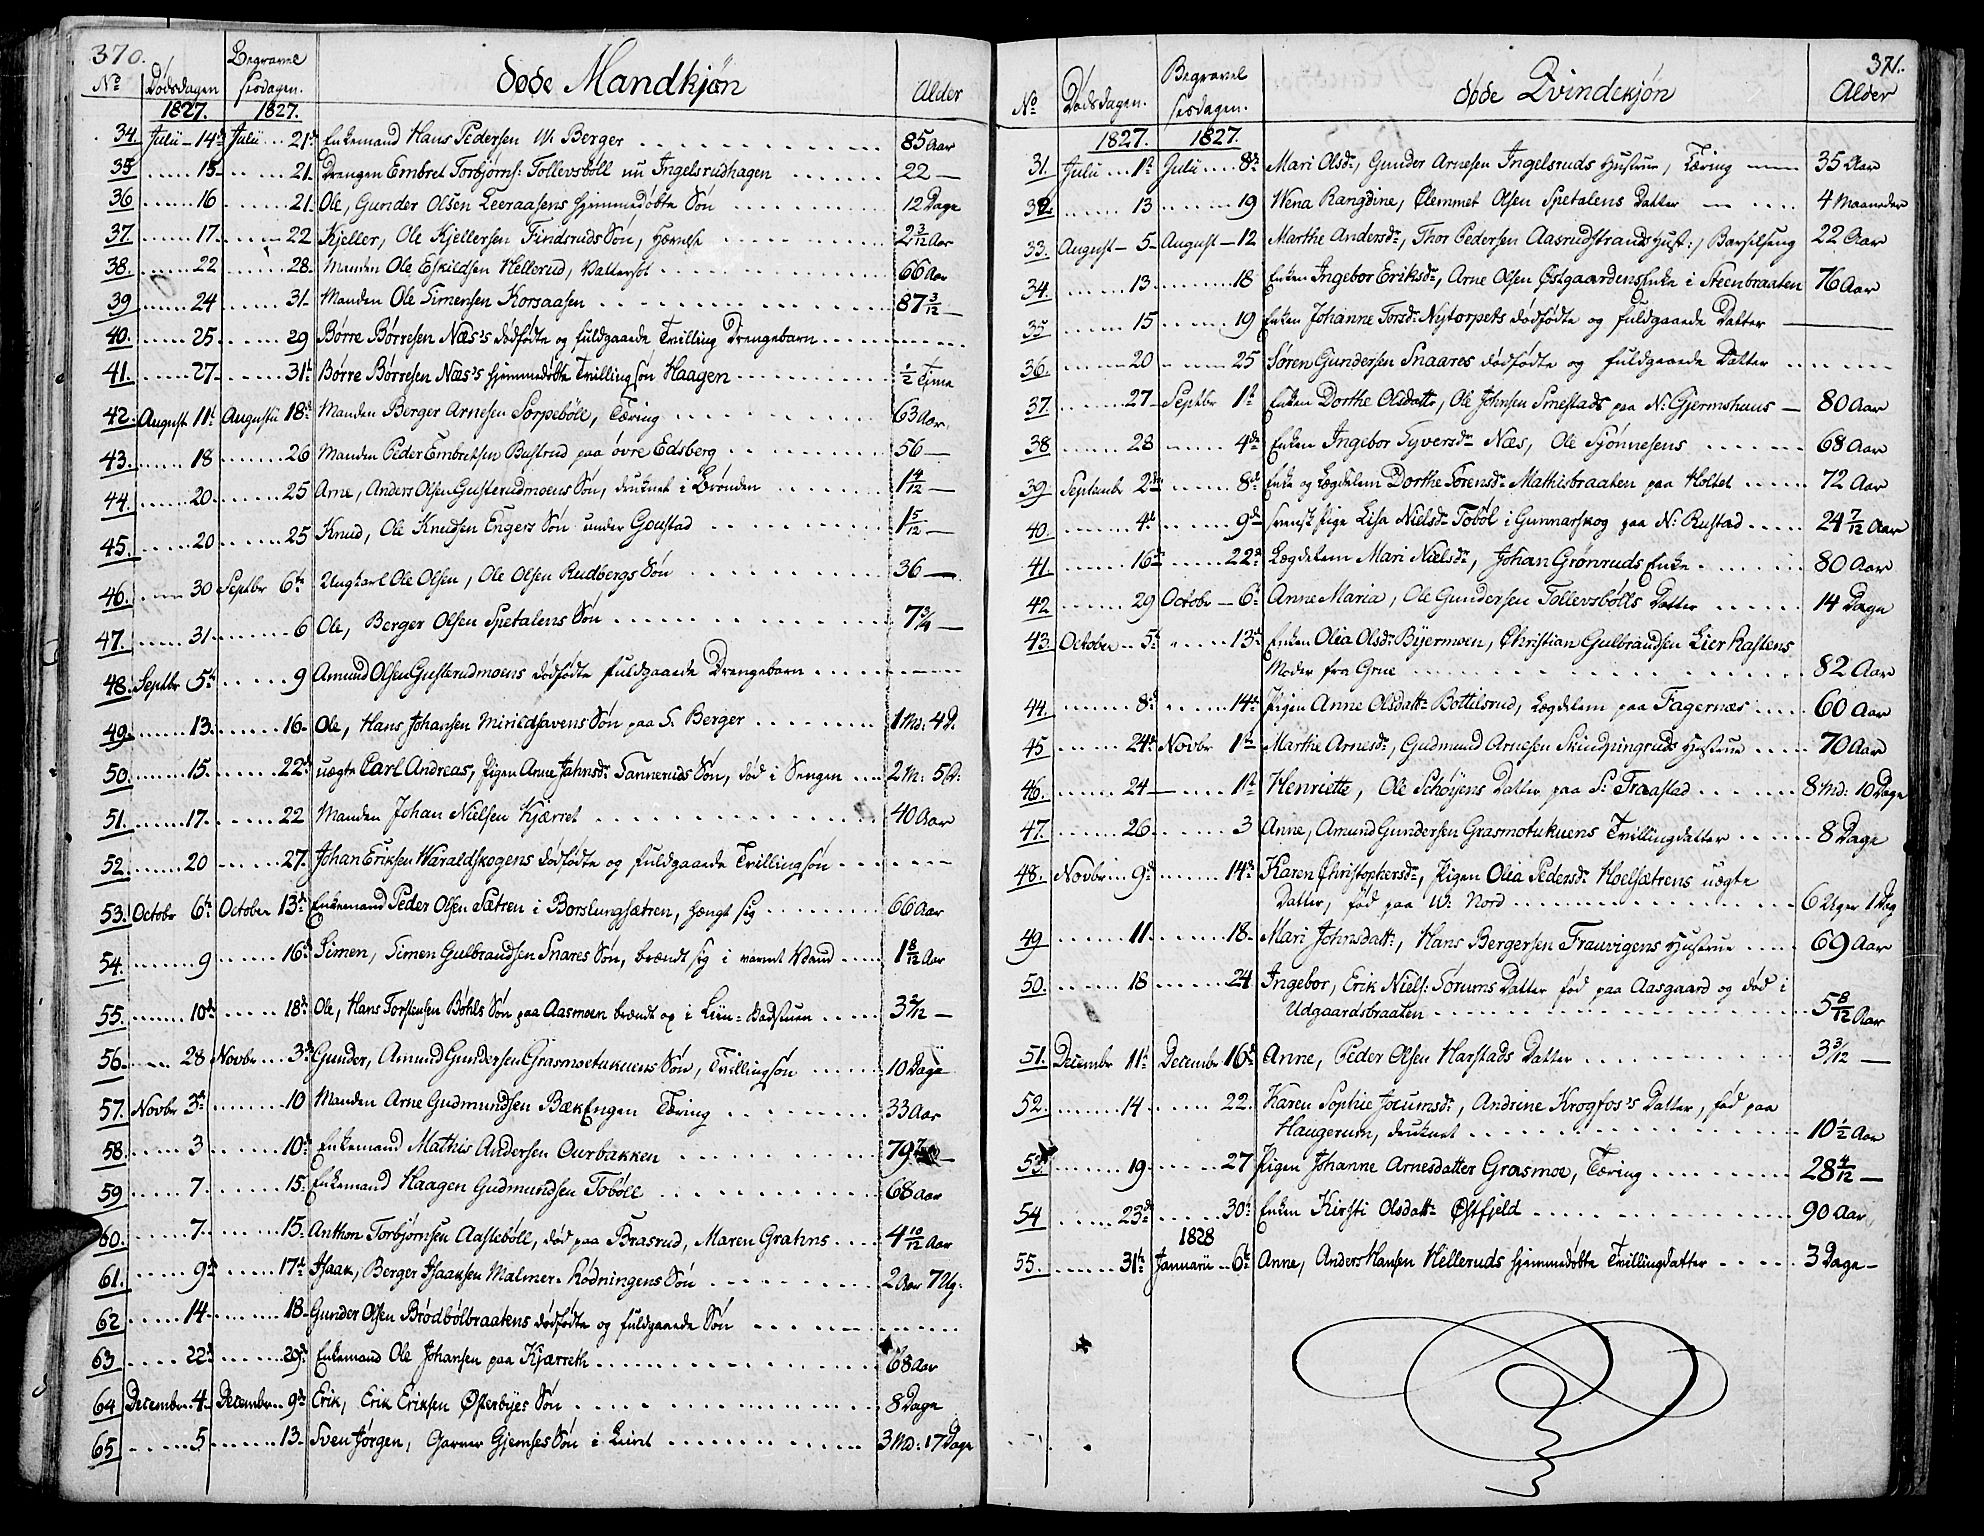 370.
døde Mandkjøn
No Dødsdagen Begravelsesdagen. Alder
1827. 1827.
34. Julii 14de Julii 21de Enkemand Hans Pedersen V. Berger 85 Aar
35 15 21. Drengen Embret Torbjørns: Tollevsböll nu Ingelsrudhagen 22 —
36 16 21. Ole, Gunder Olsen Leeraasens hjemmedøbte Søn 12 Dage
37. 17 22 Kjeller, Ole Kjellersen Findsruds Søn, 2 3/12 Aar
38. 22 28. Manden Ole Eskildsen Hellerud, Vattersot 66 Aar
39 24 31. Manden Ole Simensen Korsaasen 87 3/12 —
40. 25 29 Börre Börresen Næs's dødfødte og fuldgaaede Tvilling Drengebarn
41. 27 31te Börre Börresen Næs's hjemmedøbte Tvillingsøn Haagen 1/2 Time
42. August 11te Augustii 18de Manden Berger Arnesen Sorpeböll, Tæring 63 Aar
43. 18 26 Manden Peder Embretsen Bustrud paa övre Edsberg 56 —
44. 20 25 Arne, Anders Olsen Gusterudmoens Søn, druknet i Brønden 1 4/12 —
45. 20 25 Knud, Ole Knudsen Engers Søn under Goustad 1 5/12 —
46. 30 Septbr 6te Ungkarl Ole Olsen, Ole Olsen Rudbergs Søn 36 —
47. 31 6 Ole, Berger Olsen Spetalens Søn 7 3/4 —
48. Septbr 5te 9 Amund Olsen Gusterudmoens dødfødte fuldgaaede Drengebarn
49. 13 16 Ole, Hans Johansen Mirildhavens Søn paa S. Berger 1 Md: 4 D.
50. 15 22de uægte Carl Andreas, Pigen Anne Jahnsdr Tanneruds Søn, død i Sengen 2 M: 5 D:
51. 17 22 Manden Johan Nielsen Kjærret 40 Aar
52. 20 27. Johan Eriksen Waraldskogens dødfødte og fuldgaaede Tvillingsøn
53. Octobr 6te October 13de Enkemand Peder Olsen Sætren i Borslungsætren, hængt sig 66 Aar
54. 9 16de Simen, Simen Gulbrandsen Snares Søn, brændt sig i varmt Vand 1 8/12 Aar
55. 10de 18de Ole, Hans Torstensen Böhls Søn paa Aasmoen brændt op i Liin-Badstuen 3 2/12 —
56. 28 Novbr 3de Gunder, Amund Gundersen Grasmoetukuens Søn, Tvillingsøn 10 Dage
57. Novbr 3de 10 Manden Arne Gudmundsen BækEngen Tæring 33 Aar
58. 3 10de Enkemand Mathis Andersen Ourbakken 79
59 7 15. Enkemand Haagen Gudmundsen Toböll 68 Aar
60. 7 15. Anthon Torbjørnsen Aasteböll, død paa Brasrud, Maren Grahns 4 10/12 Aar
61. 9de 17de Isaak, Berger Isaaksen Malmer-Rødningens Søn 2 Aar 7 Ug.
62 14 18 Gunder Olsen Brødbølbraatens dødfødte og fuldgaaede Søn
63 22de 29de Enkemand Ole Johansen paa Kjærreth 68 Aar
64 December 4 December 9de Erik, Erik Eriksen Østerbyes Søn 8 Dage
65 5 13. Sven Jørgen, Garver Gjemses Søn i Leiret 3 Md: 17 Dage
371.
døde Qvindekjøn
No Dødsdagen. Begravelsesdagen. Alder
1827. 1827.
31. Julii 1te Julii 8de Mari Olsdr, Gunder Arnesen Ingelsruds Hustrue, Tæring 35 Aar
32. 13 19 Wena Rangdine, Clemmet Olsen Spetalens Datter 4 Maaneder
33. August 5 August 12 Marthe Andersdr, Thor Pedersen Aasrudstrands Hust:, Barselseng 22 Aar
34. 13 18 Enken Ingebor Eriksdr, Arne Olsen Østgaardens Enke i Steenbraaten 76 Aar
35 15 19 Enken Johanne Torsdr Nytorpets dødfødte og fuldgaaede Datter
36. 20 25 Søren Gundersen Snaares dødfødte og fuldgaaede Datter
37. 27 Septbr 1te Enken Dorthe Olsdattr, Ole Johnsen Smestads paa N: Gjermshuus 80 Aar
38 28 4de Enken Ingebor Syversdr Næs, Ole Syønnesens 68 Aar
39. Septembr 2den 8de Enke og Lægdelem Dorthe Torensdr Mathisbraaten paa Holtet 72 Aar
40. 4de 9de svensk Pige Lisa Nielsdr Toböl i Gunnarskog paa N: Rustad 24 7/12 Aar
41. 16de 22de Lægdelem Mari Nielsdr, Johan Grønruds Enke 80 Aar
42 29 Octobr 6te Anne Maria, Ole Gundersen Tollevsbölls Datter 14 Dage
43. October 5te 13de Enken Olia Olsdr Byermoen, Christian Gulbrandsen Lier Rastens
Moder fra Grue 82 Aar
44. 8de 14de Pigen Anne Olsdattr Bottilsrud, Lægdelem paa Fagernæs 60 Aar
45 24de Novbr 1te Marthe Arnesdr, Gudmund Arnesen Skindpingruds Hustrue 70 Aar
46. 24 1te Henriette, Ole Schöyens Datter paa S. Fraastad 8 Md: 10 Dage
47. 26 3 Anne, Amund Gundersen Grasmotukuens Tvillingdatter 8 Dage
48. Novbr 9de 14de Karen Christophersdr, Pigen Olia Pedersdr Hoelsætrens uægte
Datter, født paa V. Nord 6 Uger 1 Dag
49 11 18 Mari Johnsdattr, Hans Bergersen Frauvigens Hustrue 69 Aar
50. 18 24 Ingebor, Erik Niels: Sörums Datter født paa Aasgaard og død i
Udgaardsbraaten 5 8/12 Aar
51. Decembr 11te Decembr 16de Anne, Peder Olsen Harstads Datter 3 3/12 —
52. 14 22. Karen Sophie Joeumsdr, Andrine Krogfos's Datter, født paa
Haugerum, druknet 10 1/2 Aar
53. 19 27 Pigen Johanne Arnesdatter Grasmoe, Tæring 28 4/12 —
54 23de 30te Enken Kirsti Olsdattr Østfjeld 90 Aar
1828
55. 31te Januarii 6te Anne, Anders Hansen Helleruds hjemmedøbte Tvillingdatter 3 Dage